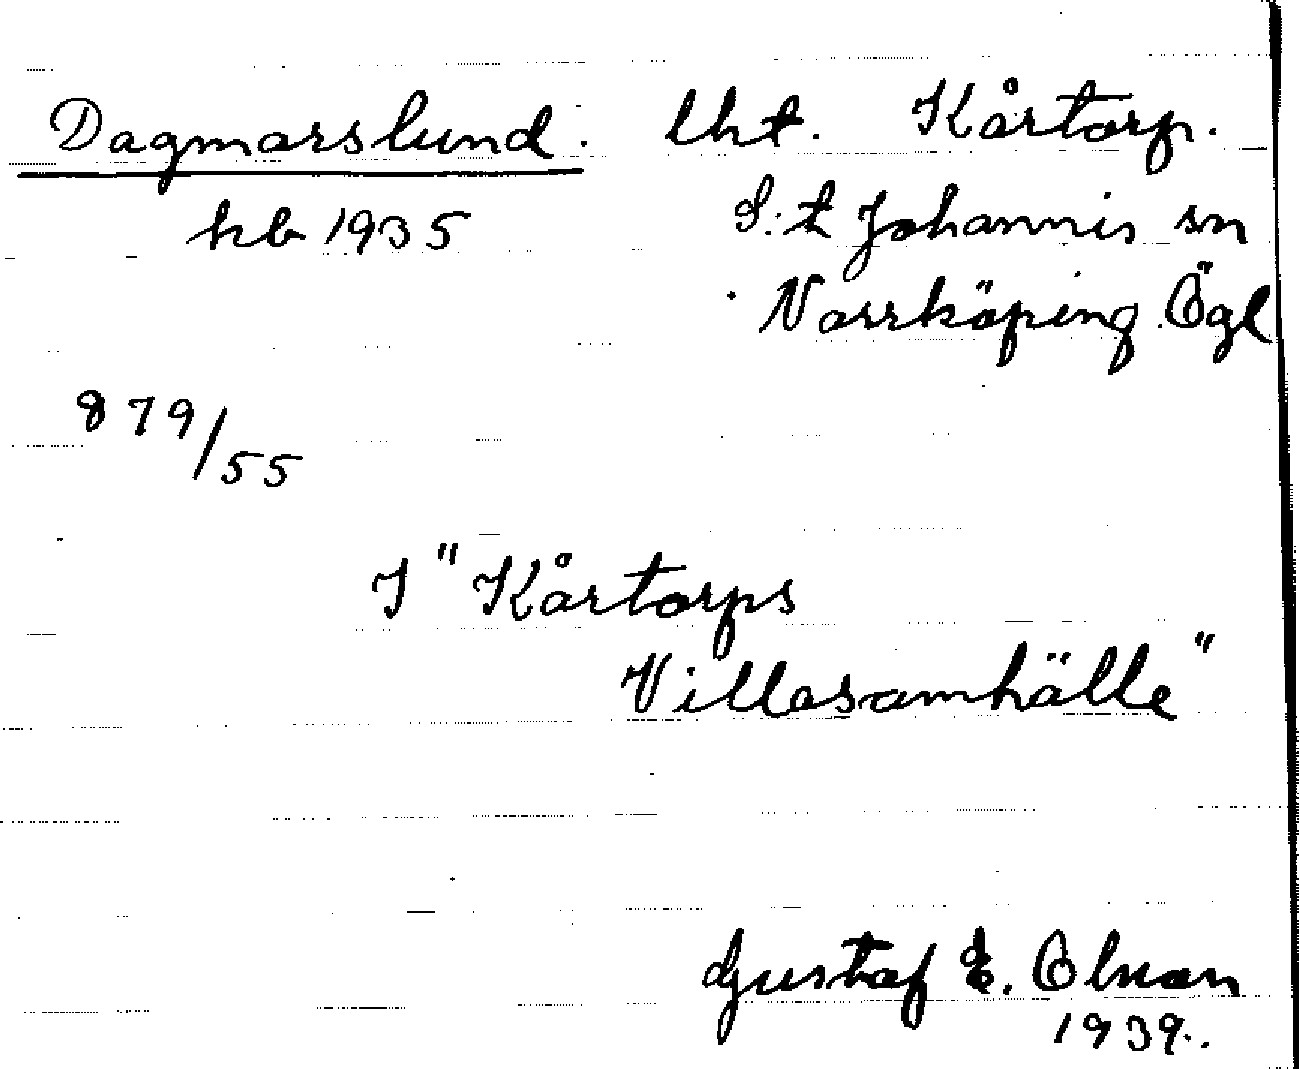 Dagmarslund. lht. Kårtorp.
kb 1935 S:t Johannis sn
Norrköping Ögl
879/55
I "Kårtorps
Villasamhälle"
Gustaf E. Olson
1939.